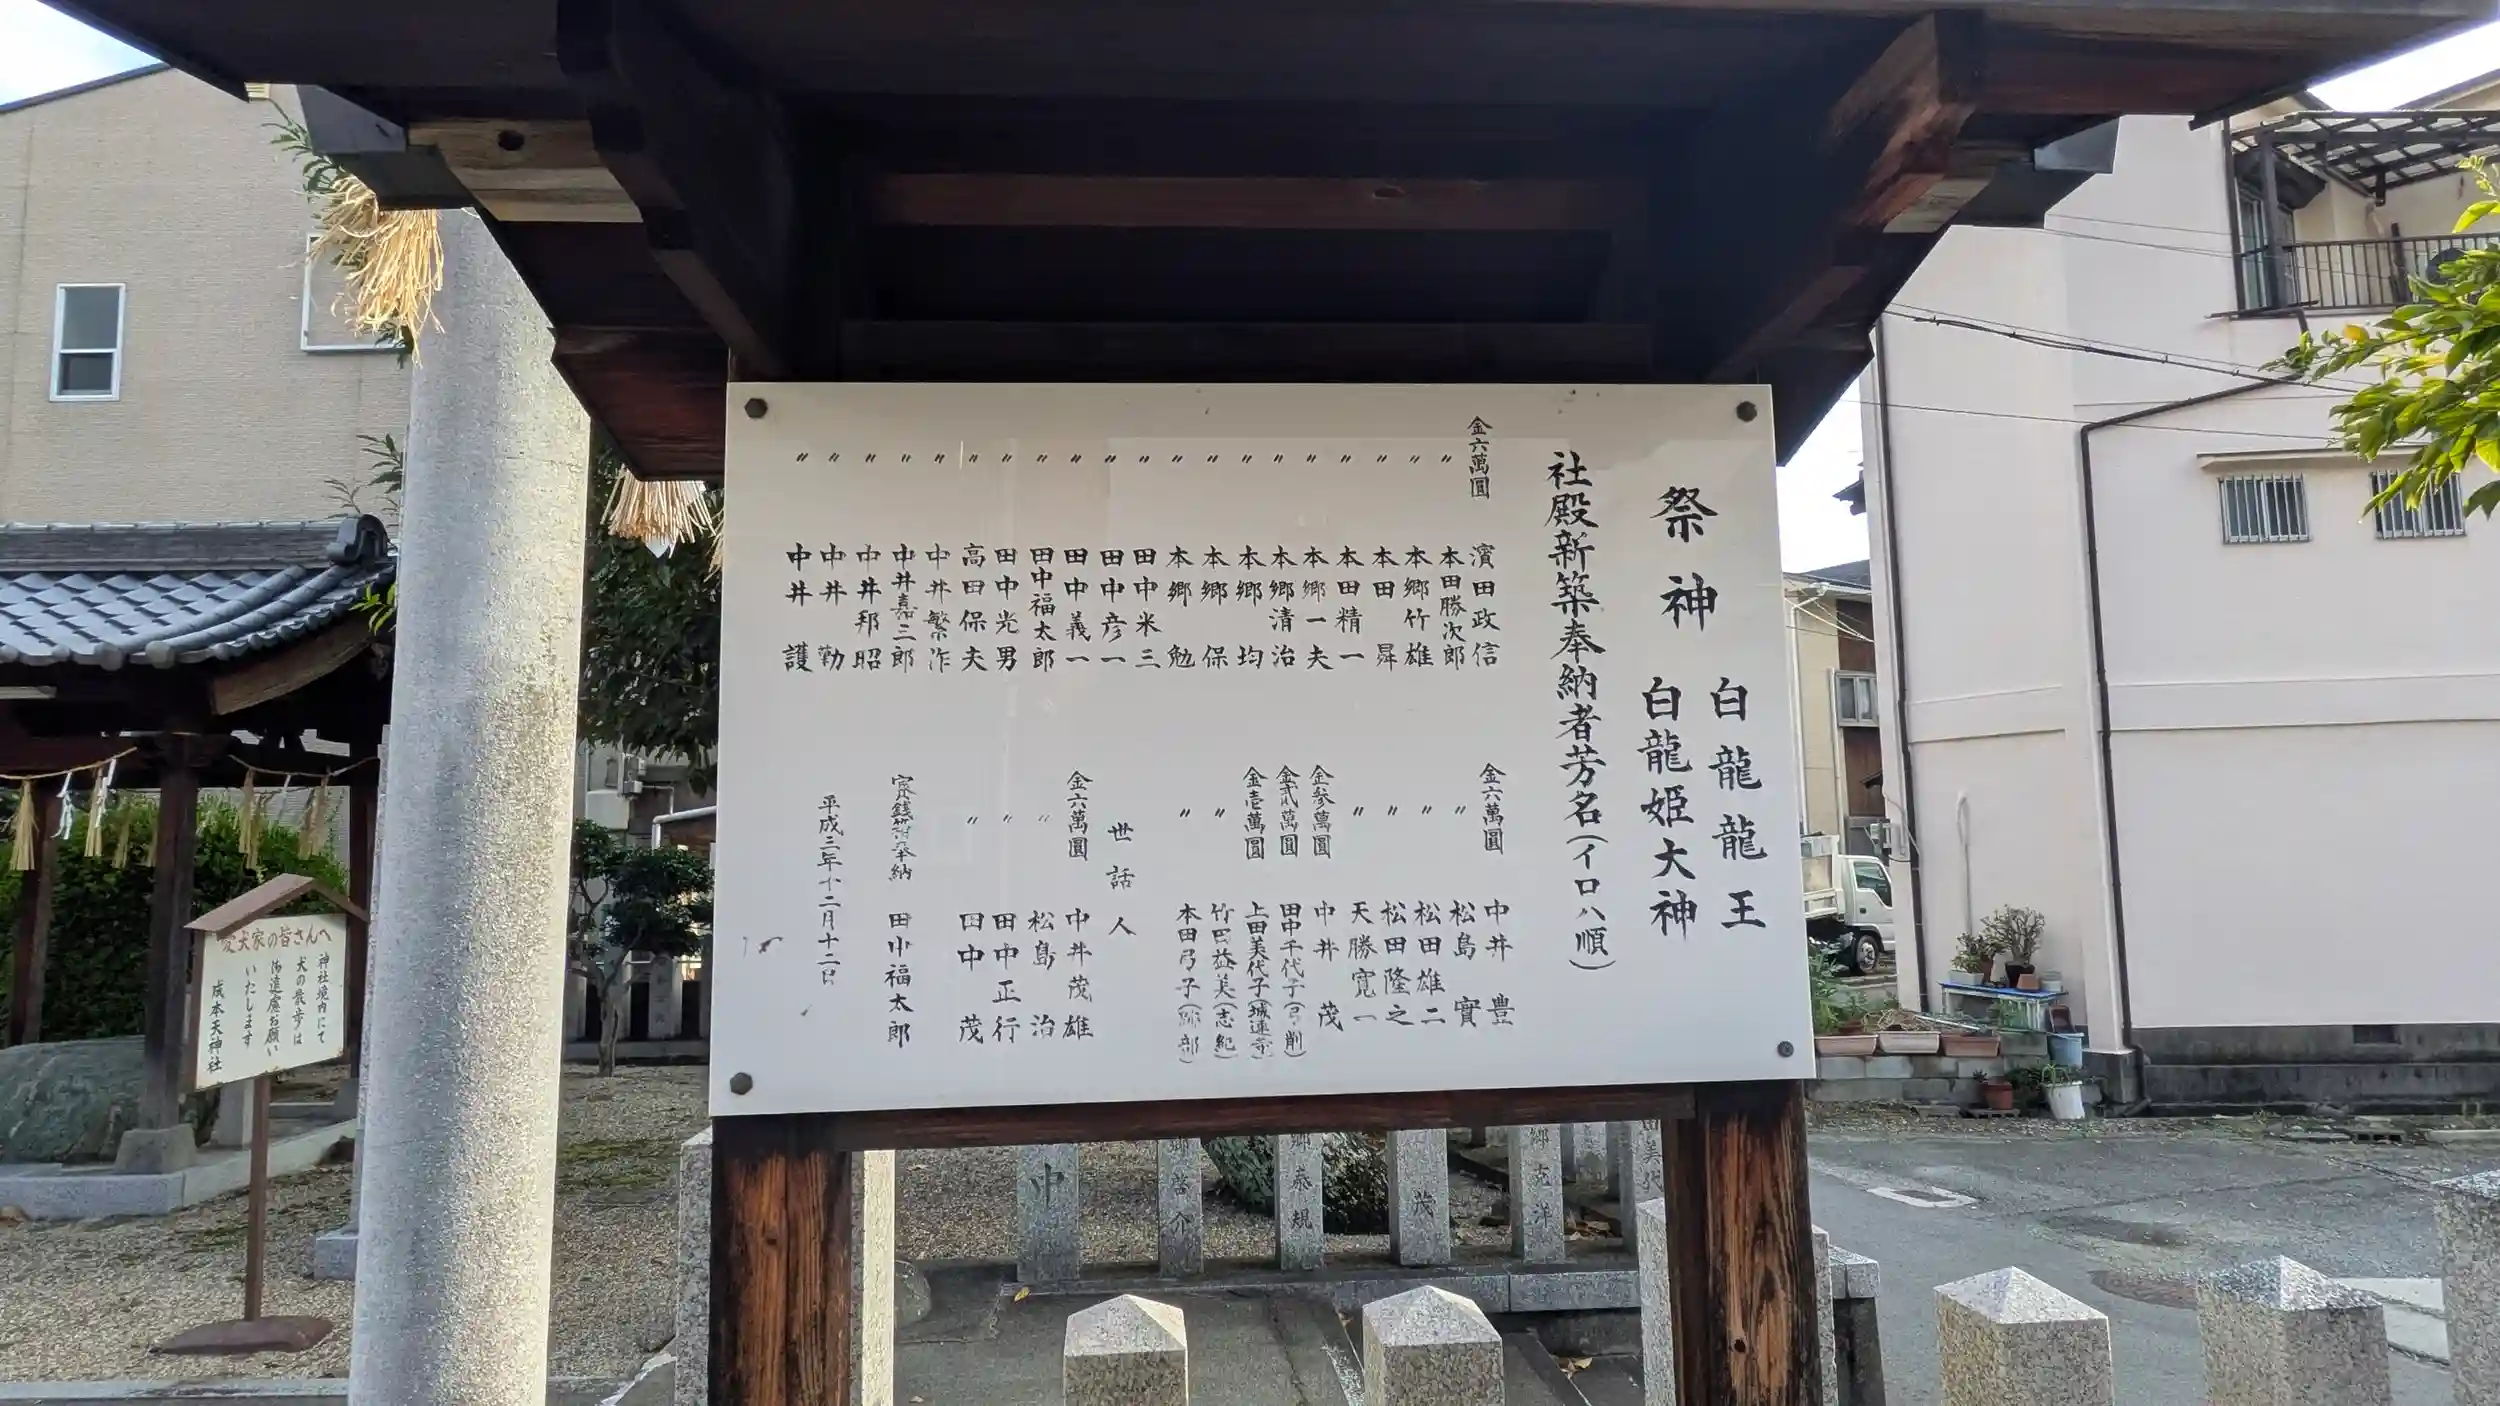 祭神 白龍龍王
白龍姫大神
社殿新築奉納者芳名(イロハ順)
金六萬圓 濱田政信
〃 本田勝次郎
〃 本郷竹雄
〃 本田 昇
〃 本田精一
〃 本郷一夫
〃 本郷清治
〃 本郷 均
〃 本郷 保
〃 本郷 勉
〃 田中米三
〃 田中彦一
〃 田中義一
〃 田中福太郎
〃 田中光男
〃 高田保夫
〃 中井繁作
〃 中井嘉三郎
〃 中井邦昭
〃 中井 勤
〃 中井 護
金六萬圓 中井 豊
〃 松島 實
〃 松田雄二
〃 松田隆之
〃 天勝寛一
金参萬圓 中井 茂
金弐萬圓 田中千代子(弓削)
金壱萬圓 上田美代子(城連寺)
〃 竹巴益美(志紀)
〃 本田弓子(跡部)
世話人
金六萬圓 中井茂雄
〃 松島 治
〃 田中正行
〃 田中 茂
賽銭箱奉納 田中福太郎
平成三年十二月十二日
愛犬家の皆さんへ
神社境内にて
犬の散歩は
御遠慮お願い
いたします
成本天神社
中
啓介
郷泰規
茂
郷克洋
田美代